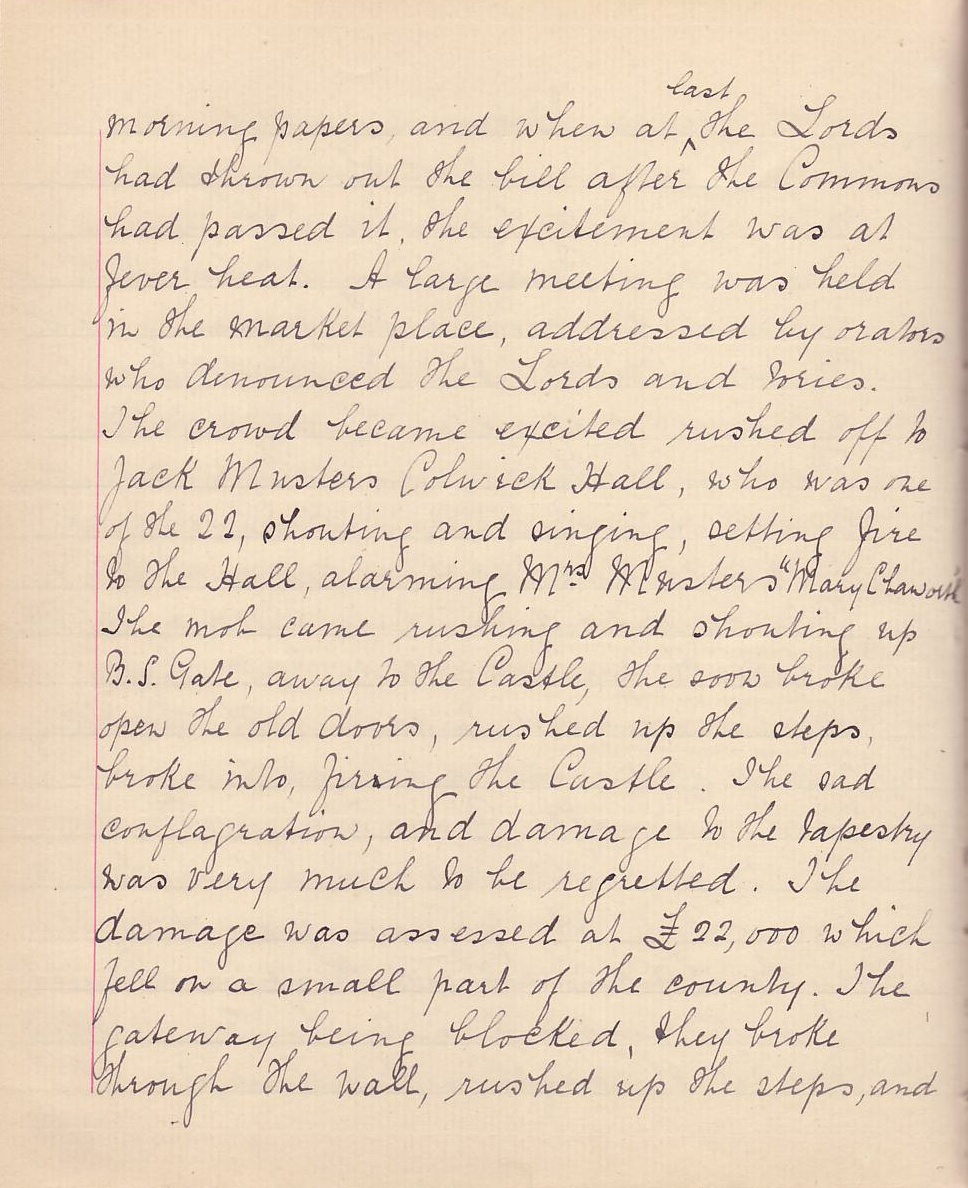 morning papers, and when at last the Lords
had thrown out the bill after the Commons
had passed it, the excitement was at
fever heat. A large meeting was held
in the market place, addressed by orators
who denounced the Lords and tories.
The crowd became excited rushed off to
Jack Musters Colwick Hall, who was one
of the 22, shouting and singing, setting fire
to the Hall, alarming Mrs Musters "Mary Chaworth"
The mob came rushing and shouting up
B.S. Gate, away to the Castle, the soon broke
open the old doors, rushed up the steps,
broke into, firing the Castle. The sad
conflagration, and damage to the tapestry
was very much to be regretted. The
damage was assessed at £22,000 which
fell on a small part of the county. The
gateway being blocked, they broke
through the wall, rushed up the steps, and